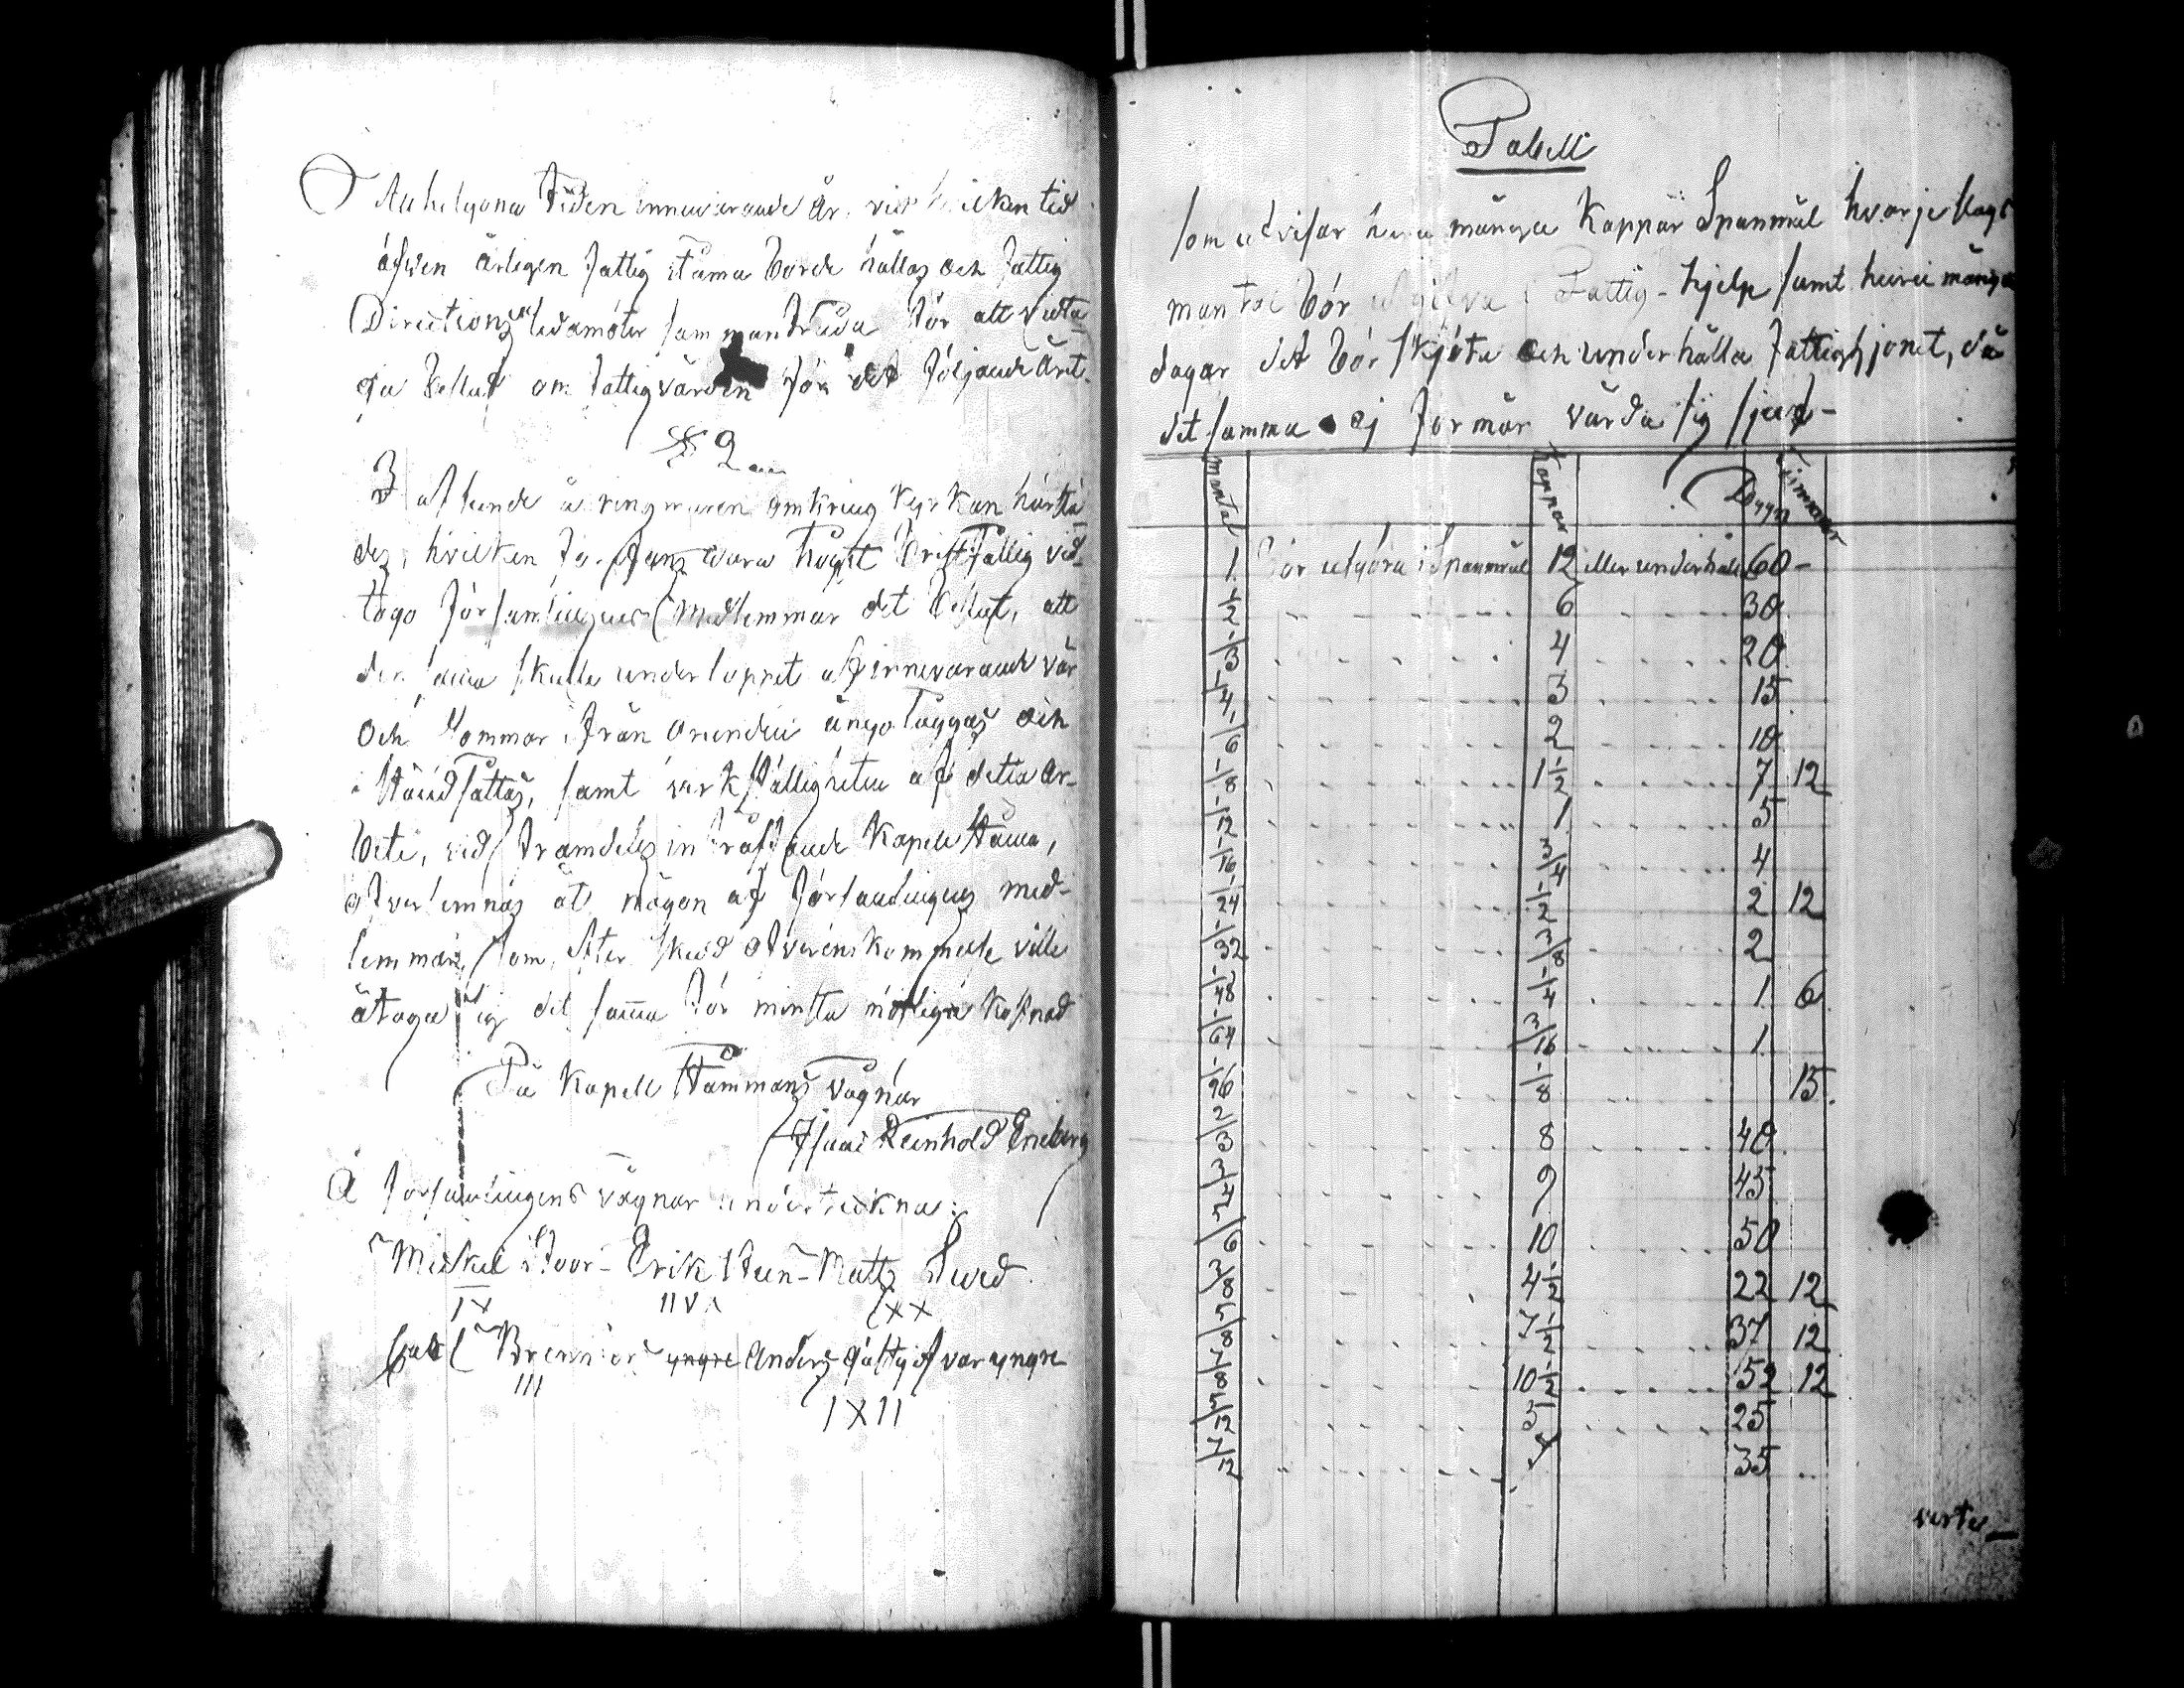 Allhelgona tiden innevarande år, vid hvilken tid
äfven årligen fattig stämma borde hållas och fattig
Directions ledamöter sammanträda för att vidta-
ga beslut om fattigvården för det följande året.
§ 2
I afseende å ringmuren omkring Kyrkan härstä
des, hvilken befans vara högst bristfällig vid-
togo Församlingens Medlemmar det beslut, att
den samma skulle under loppet af innevarande vår
och Sommar ifrån grunden ånyo läggas och
i ståndsättas, samt verkställigheten af detta ar-
bete, vid framdeles inträffande Kapell stämma,
öfverlemnas åt någon af församlingens med-
lemmar, som, efter skedd öfverenskommelse ville
åtaga sig det samma för minsta möjliga kostnad
På Kapell Stämmans vägnar
Isaac Reinhold Eneberg
Å församlingens vägnar underteckna:
Mickel Stoor - Erik Steen - Matts Swed
Brenner yngre Anders Gästgifvar yngre
III
IXII
Tabell
som utvisar huru många Kappar Spanmål hvarje slags
mantal bör utgifva i Fattig-hjelp samt huru många
dagar det bör skjöta och underhålla fattighjonet, då
det samma ej förmår vårda sig sjelf-
Mantal Kappar Dygn Timmar
1 Bör utgöra i Spannmål 12 eller underhåll 60 -
1/2 6 30
1/3 4 20
1/4 3 15
1/6 2 10
1/8 1 1/2 7 12
1/12 1 5
1/16 3/4 4
1/24 1/2 2 12
1/32 3/8 2
1/48 1/4 1 6
1/64 3/16 1
1/96 1/8 15
2/3 8 40
3/4 9 45
5/6 10 50
3/8 4 1/2 22 12
5/8 7 1/2 37 12
7/8 10 1/2 52 12
5/12 5 25
7/12 7 35
verte